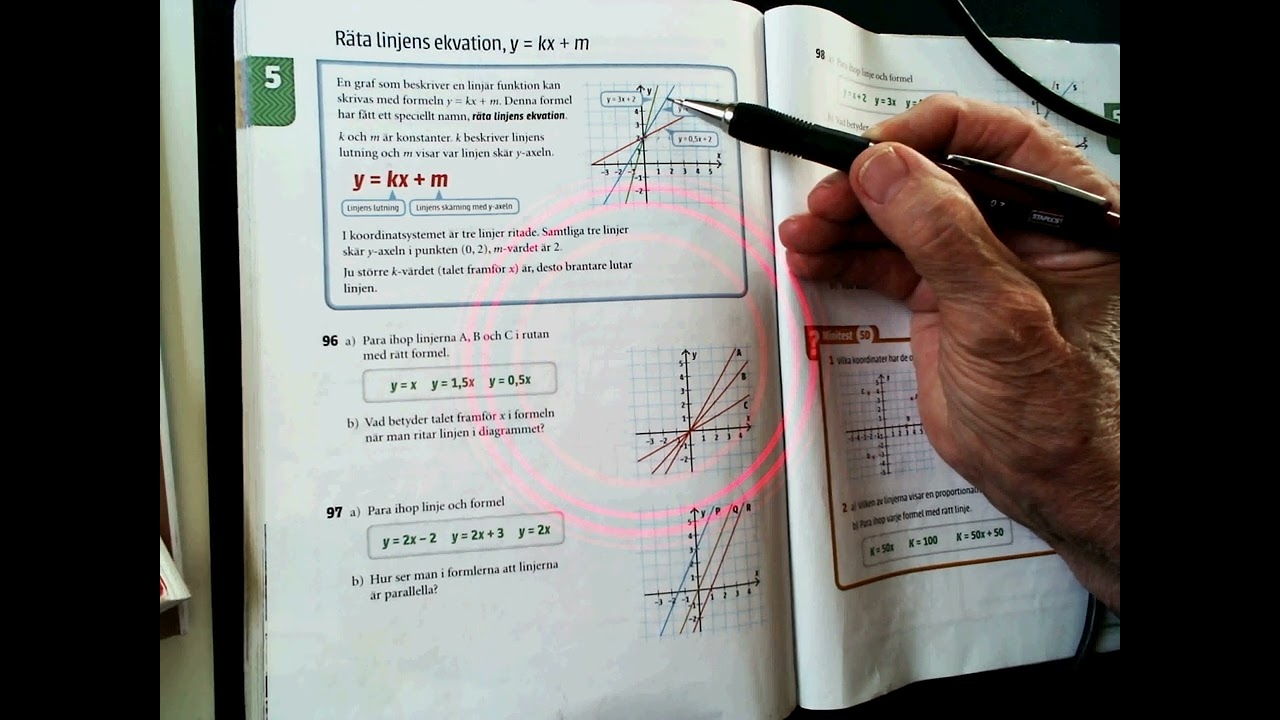 Räta linjens ekvation, y = kx + m
5
En graf som beskriver en linjär funktion kan
skrivas med formeln y = kx + m. Denna formel
har fått ett speciellt namn, räta linjens ekvation.
k och m är konstanter. k beskriver linjens
lutning och m visar var linjen skär y-axeln.
y = kx + m
Linjens lutning
Linjens skärning med y-axeln
I koordinatsystemet är tre linjer ritade. Samtliga tre linjer
skär y-axeln i punkten (0, 2), m-värdet är 2.
Ju större k-värdet (talet framför x) är, desto brantare lutar
linjen.
y = 3x + 2
y = 0,5x + 2
y
x
-3 -2 -1 1 2 3 4 5
96 a) Para ihop linjerna A, B och C i rutan
med rätt formel.
y = x y = 1,5x y = 0,5x
b) Vad betyder talet framför x i formeln
när man ritar linjen i diagrammet?
y A
B
C
x
-3 -2 1 2 3 4
97 a) Para ihop linje och formel
y = 2x – 2 y = 2x + 3 y = 2x
b) Hur ser man i formlerna att linjerna
är parallella?
y P Q R
x
-3 -2 -1 1 2 3 4
98 a) Para ihop linje och formel
y = x + 2 y = 3x
b) Vad betyder
Minitest 50
1 Vilka koordinater har de
2 a) Vilken av linjerna visar en
b) Para ihop varje formel med rätt linje.
K = 50x K = 100 K = 50x + 50
STAPLES